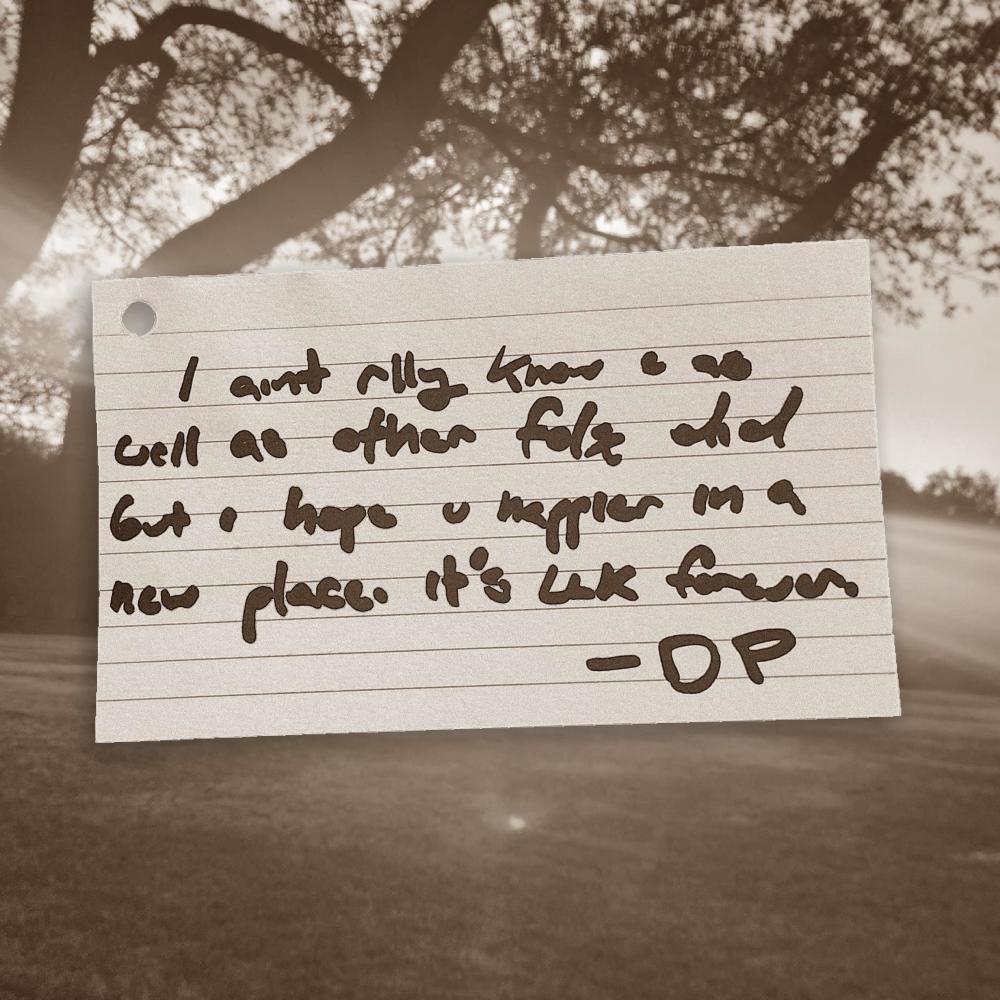 I aint rlly know u as
well as other folx did
but i hope u happier in a
new place. it's LLK forever.
- DP